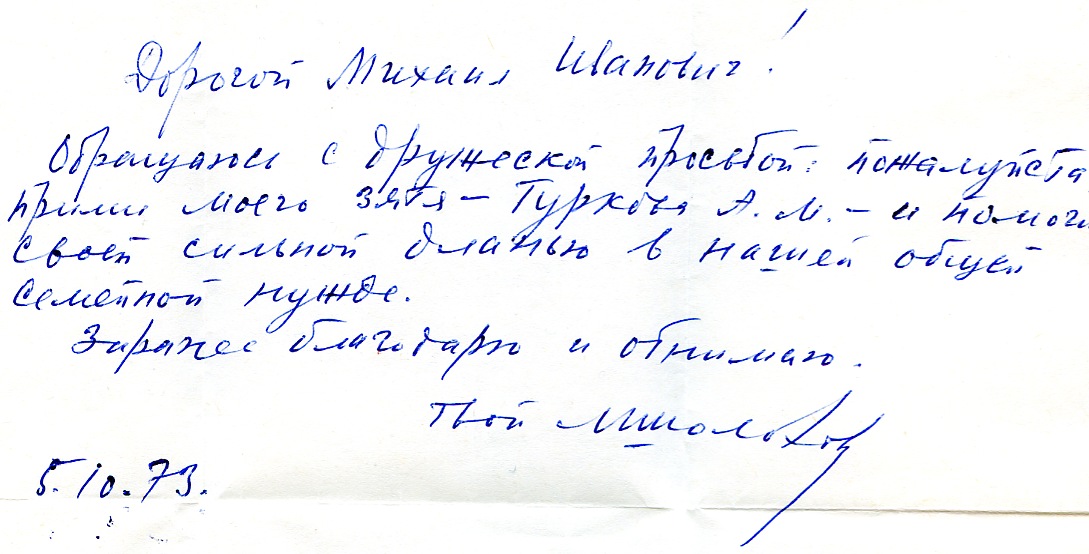 Дорогой Михаил Иванович!
Обращаюсь с дружеской просьбой: пожалуйста
прими моего зятя – Туркова А. М. – и помоги
своей сильной дланью в нашей общей
семейной нужде.
Заранее благодарю и обнимаю.
Твой МШолохов
5.10.73.